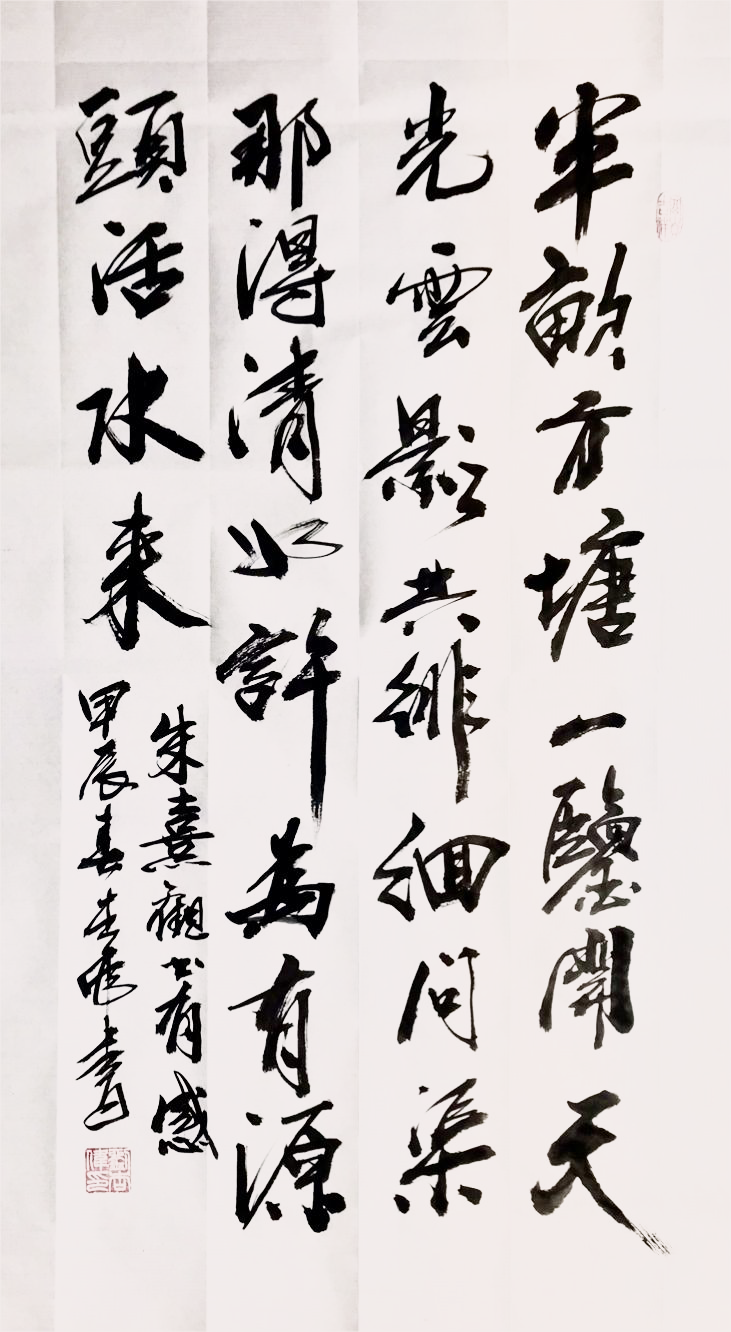 半畝方塘一鑒開天
光雲影共徘徊問渠
那得清如許為有源
頭活水來
朱熹觀書有感
甲辰春書